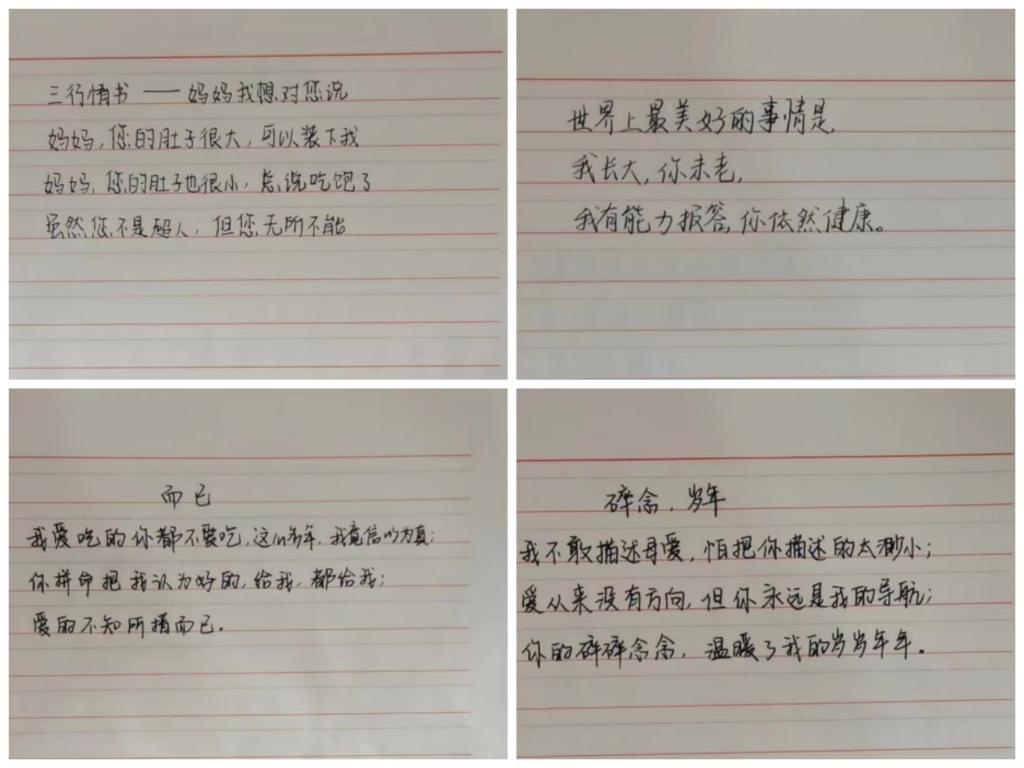 三行情书 —— 妈妈我想对您说
妈妈,您的肚子很大,可以装下我
妈妈,您的肚子也很小,总说吃饱了
虽然您不是超人,但您无所不能
世界上最美好的事情是,
我长大,你未老,
我有能力报答,你依然健康。
而已
我爱吃的你都不爱吃,这么多年,我竟信以为真;
你拼命把我认为好的,给我,都给我;
爱的不知所措而已。
碎念,岁年
我不敢描述母爱,怕把你描述的太渺小;
爱从来没有方向,但你永远是我的导航;
你的碎碎念念,温暖了我的岁岁年年。